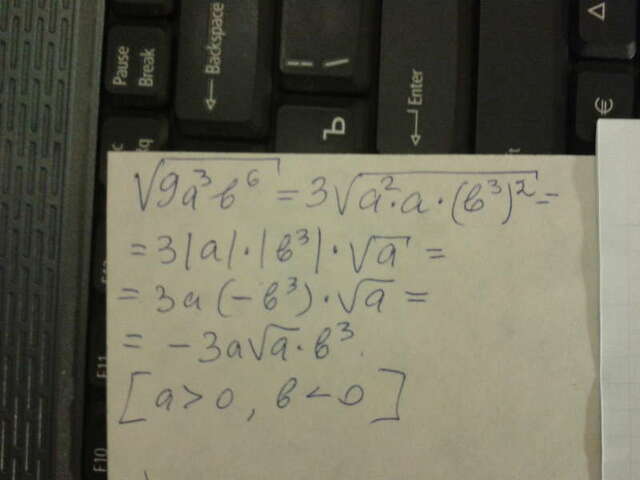 Pause
Break
Backspace
Enter
Ъ
€
√9a³b⁶ = 3√a²·a·(b³)² =
= 3|a|·|b³|·√a =
= 3a(-b³)·√a =
= -3a√a·b³.
[a>0, b<0]
F11
F10